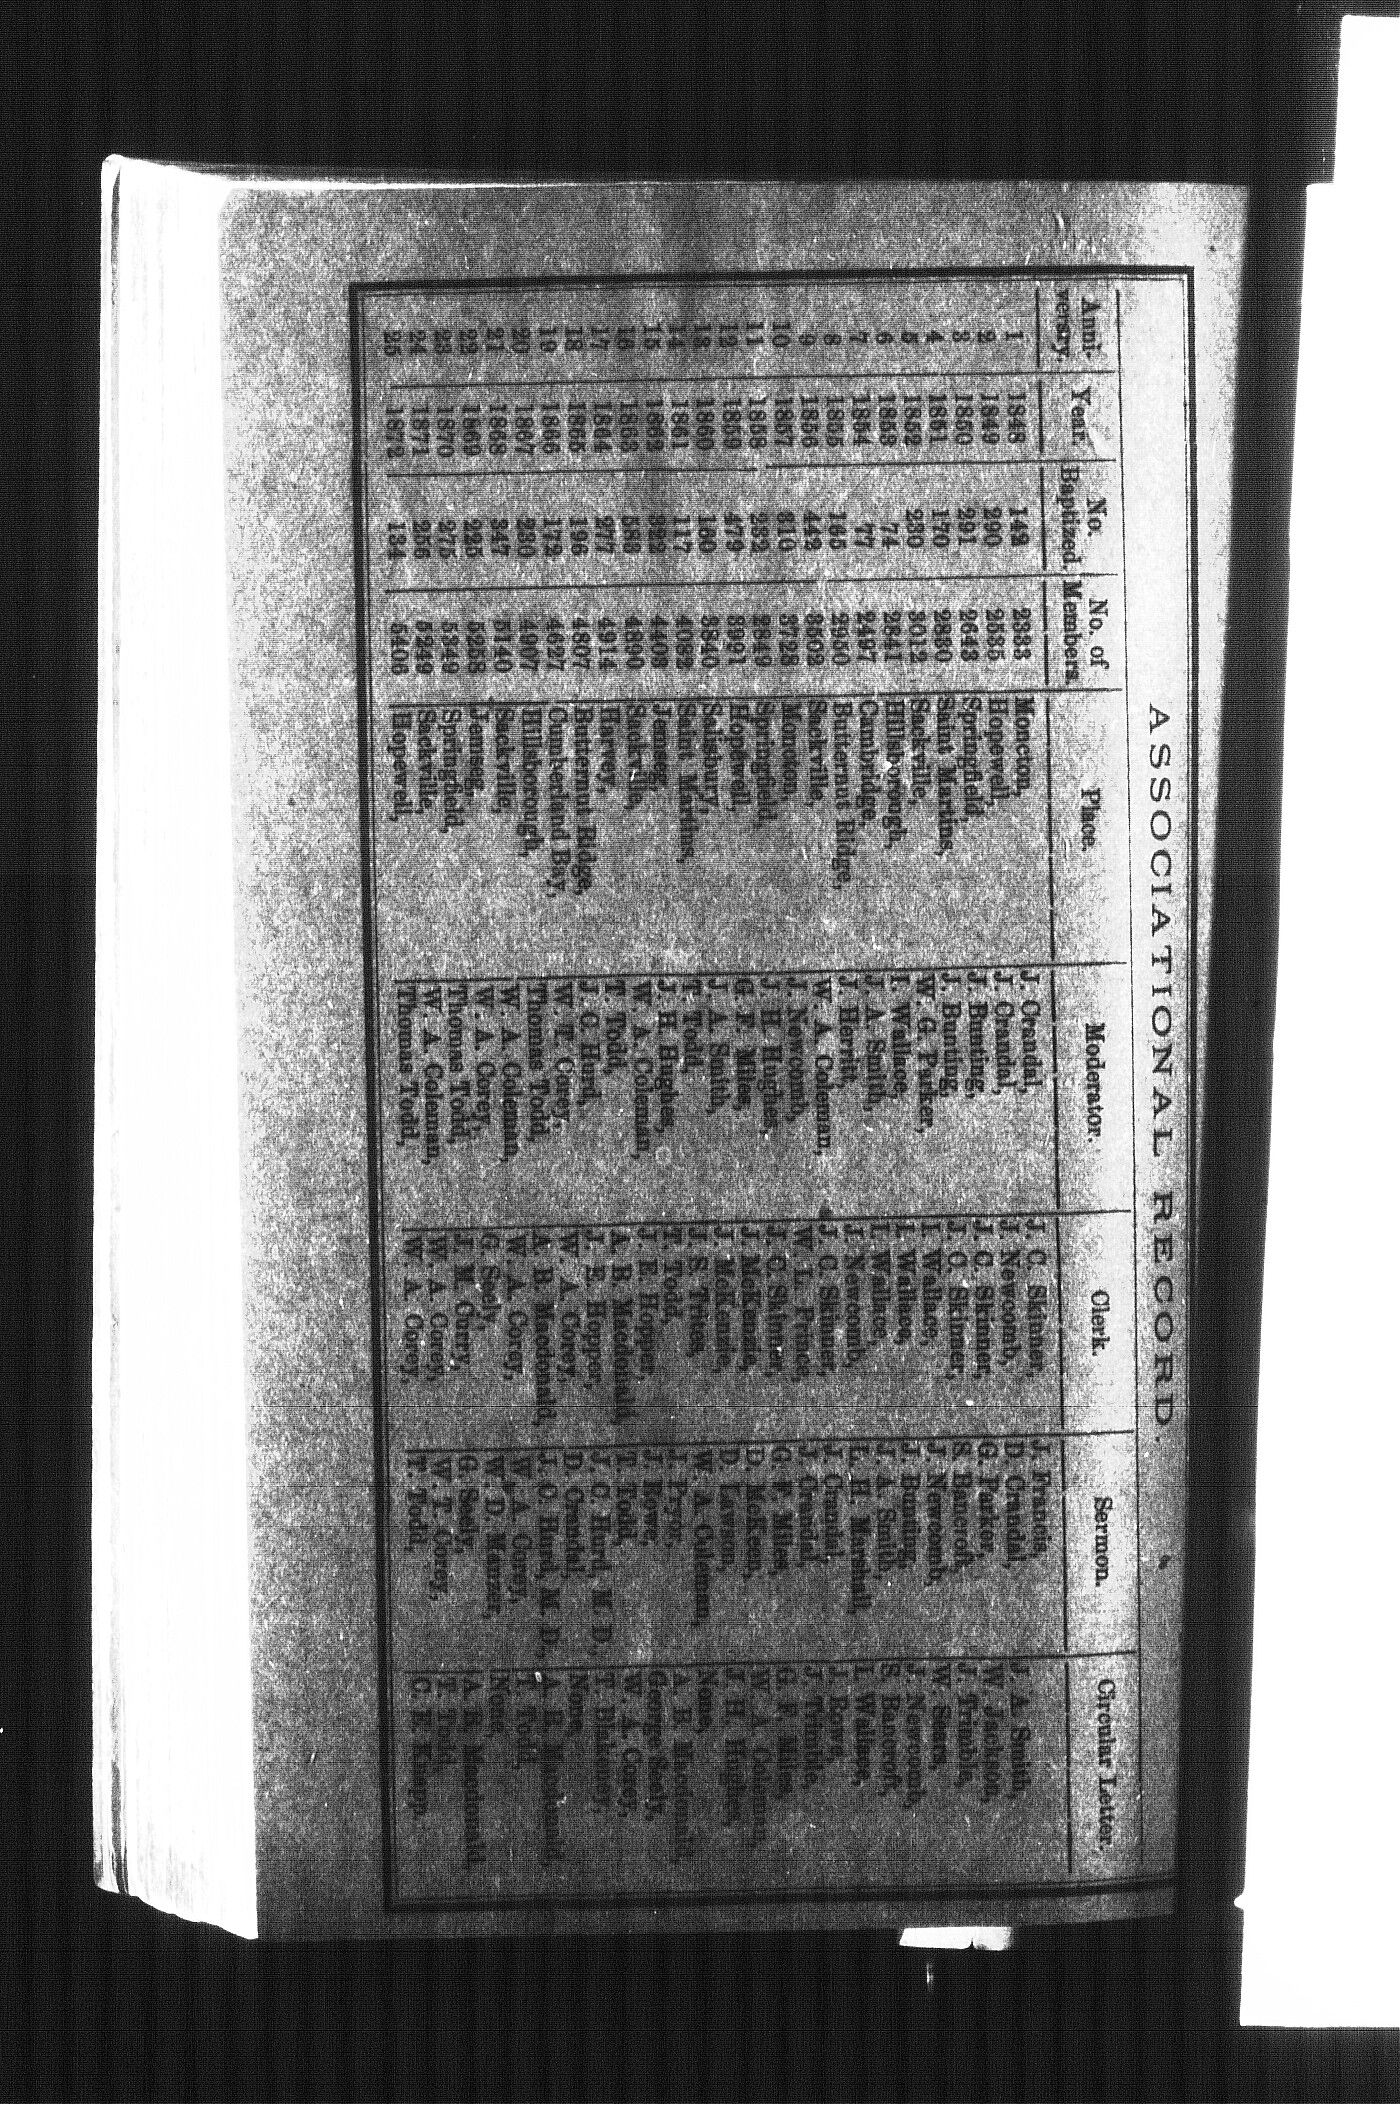 ASSOCIATIONAL RECORD.
Anni-versary. Year. No. Baptized. No. of Members. Place. Moderator. Clerk. Sermon. Circular Letter.
1 1848 142 2333 Moncton, J. Crandal, J. C. Skinner, J. Francis, J. A. Smith,
2 1849 290 2535 Hopewell, J. Crandal, J. Newcomb, D. Crandal, W. Jackson,
3 1850 291 2643 Springfield, J. Bunting, J. C. Skinner, G. Parker, J. Trimble,
4 1851 170 2880 Saint Martins, J. Bunting, J. C. Skinner, S. Bancroft, W. Sears,
5 1852 230 3012 Sackville, W. G. Parker, I. Wallace, J. Newcomb, J. Newcomb,
6 1853 74 2841 Hillsborough, I. Wallace, I. Wallace, J. Bunting, S. Bancroft,
7 1854 77 2497 Cambridge, J. A. Smith, I. Wallace, J. A. Smith, I. Wallace,
8 1855 165 2950 Butternut Ridge, J. Herritt, J. Newcomb, L. H. Marshall, J. Rowe,
9 1856 442 3502 Sackville, W. A. Coleman, J. C. Skinner, J. Crandal, J. Trimble,
10 1857 310 3728 Moncton, J. Newcomb, W. L. Prince, J. Crandal, G. F. Miles,
11 1858 232 2849 Springfield, J. H. Hughes, J. C. Skinner, G. F. Miles, W. A. Coleman,
12 1859 479 3991 Hopewell, G. F. Miles, J. McKenzie, D. McKeen, J. H. Hughes,
13 1860 160 3840 Salisbury, J. A. Smith, J. McKenzie, D. Lawson, None,
14 1861 117 4082 Saint Martins, T. Todd, J. S. Trites, W. A. Coleman, A. B. Macdonald,
15 1862 322 4408 Jemseg, J. H. Hughes, T. Todd, J. Pryor, George Seely,
16 1863 583 4890 Sackville, W. A. Coleman, J. E. Hopper, J. Rowe, W. A. Corey,
17 1864 277 4914 Harvey, T. Todd, A. B. Macdonald, T. Todd, T. Blakeney,
18 1865 196 4807 Butternut Ridge, J. C. Hurd, J. E. Hopper, J. C. Hurd, M. D., None,
19 1866 172 4627 Cumberland Bay, W. T. Corey, W. A. Corey, D. Crandal, A. B. Macdonald,
20 1867 230 4907 Hillsborough, Thomas Todd, A. B. Macdonald, J. C. Hurd, M. D., T. Todd,
21 1868 347 5140 Sackville, W. A. Coleman, W. A. Corey, W. A. Corey, None,
22 1869 225 5258 Jemseg, W. A. Corey, G. Seely, W. D. Manzer, A. B. Macdonald,
23 1870 275 5349 Springfield, Thomas Todd, J. M. Curry, G. Seely, T. Todd,
24 1871 256 5249 Sackville, W. A. Coleman, W. A. Corey, W. T. Corey, C. E. Knapp.
25 1872 134 5406 Hopewell, Thomas Todd, W. A. Corey, T. Todd,